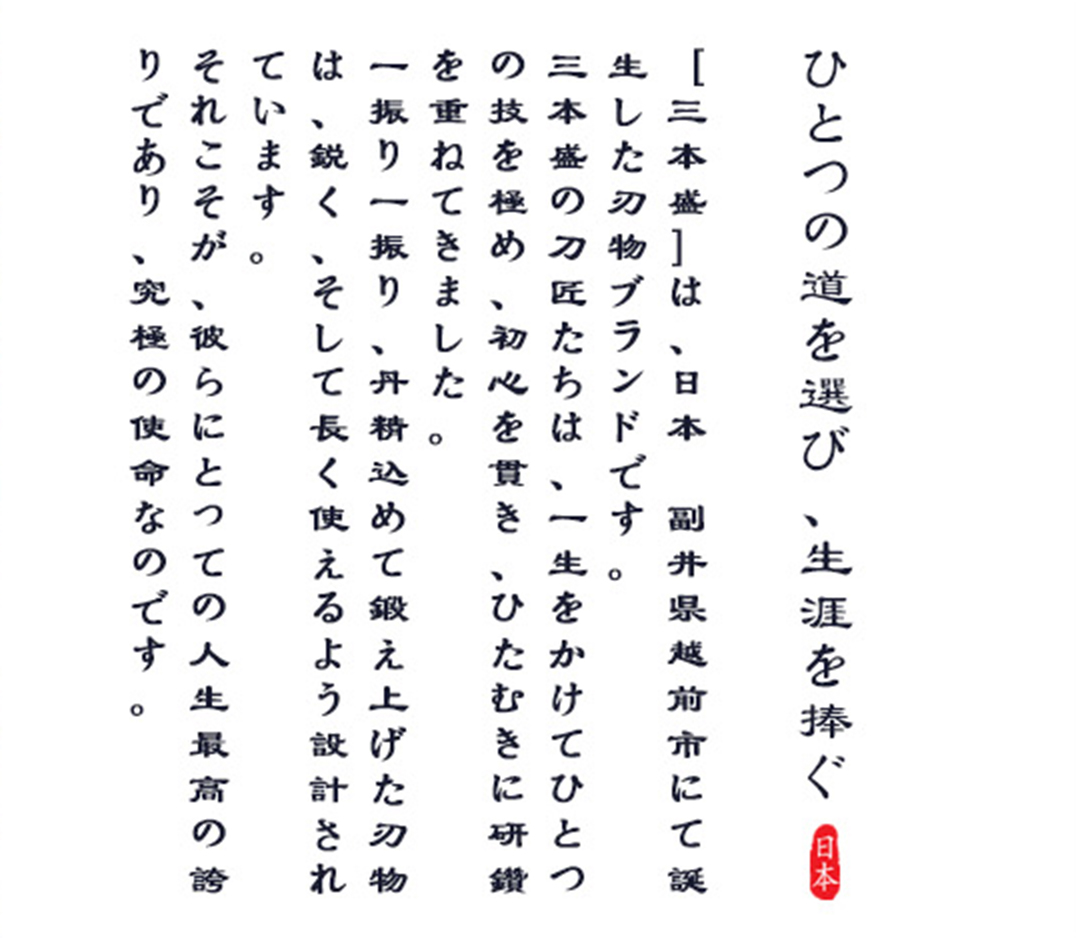 ひとつの道を選び、生涯を捧ぐ
日本
[三本盛]は、日本　副井県越前市にて誕
生した刃物ブランドです。
三本盛の刀匠たちは、一生をかけてひとつ
の技を極め、初心を貫き、ひたむきに研鑽
を重ねてきました。
一振り一振り、丹精込めて鍛え上げた刃物
は、鋭く、そして長く使えるよう設計され
ています。
それこそが、彼らにとっての人生最高の誇
りであり、究極の使命なのです。